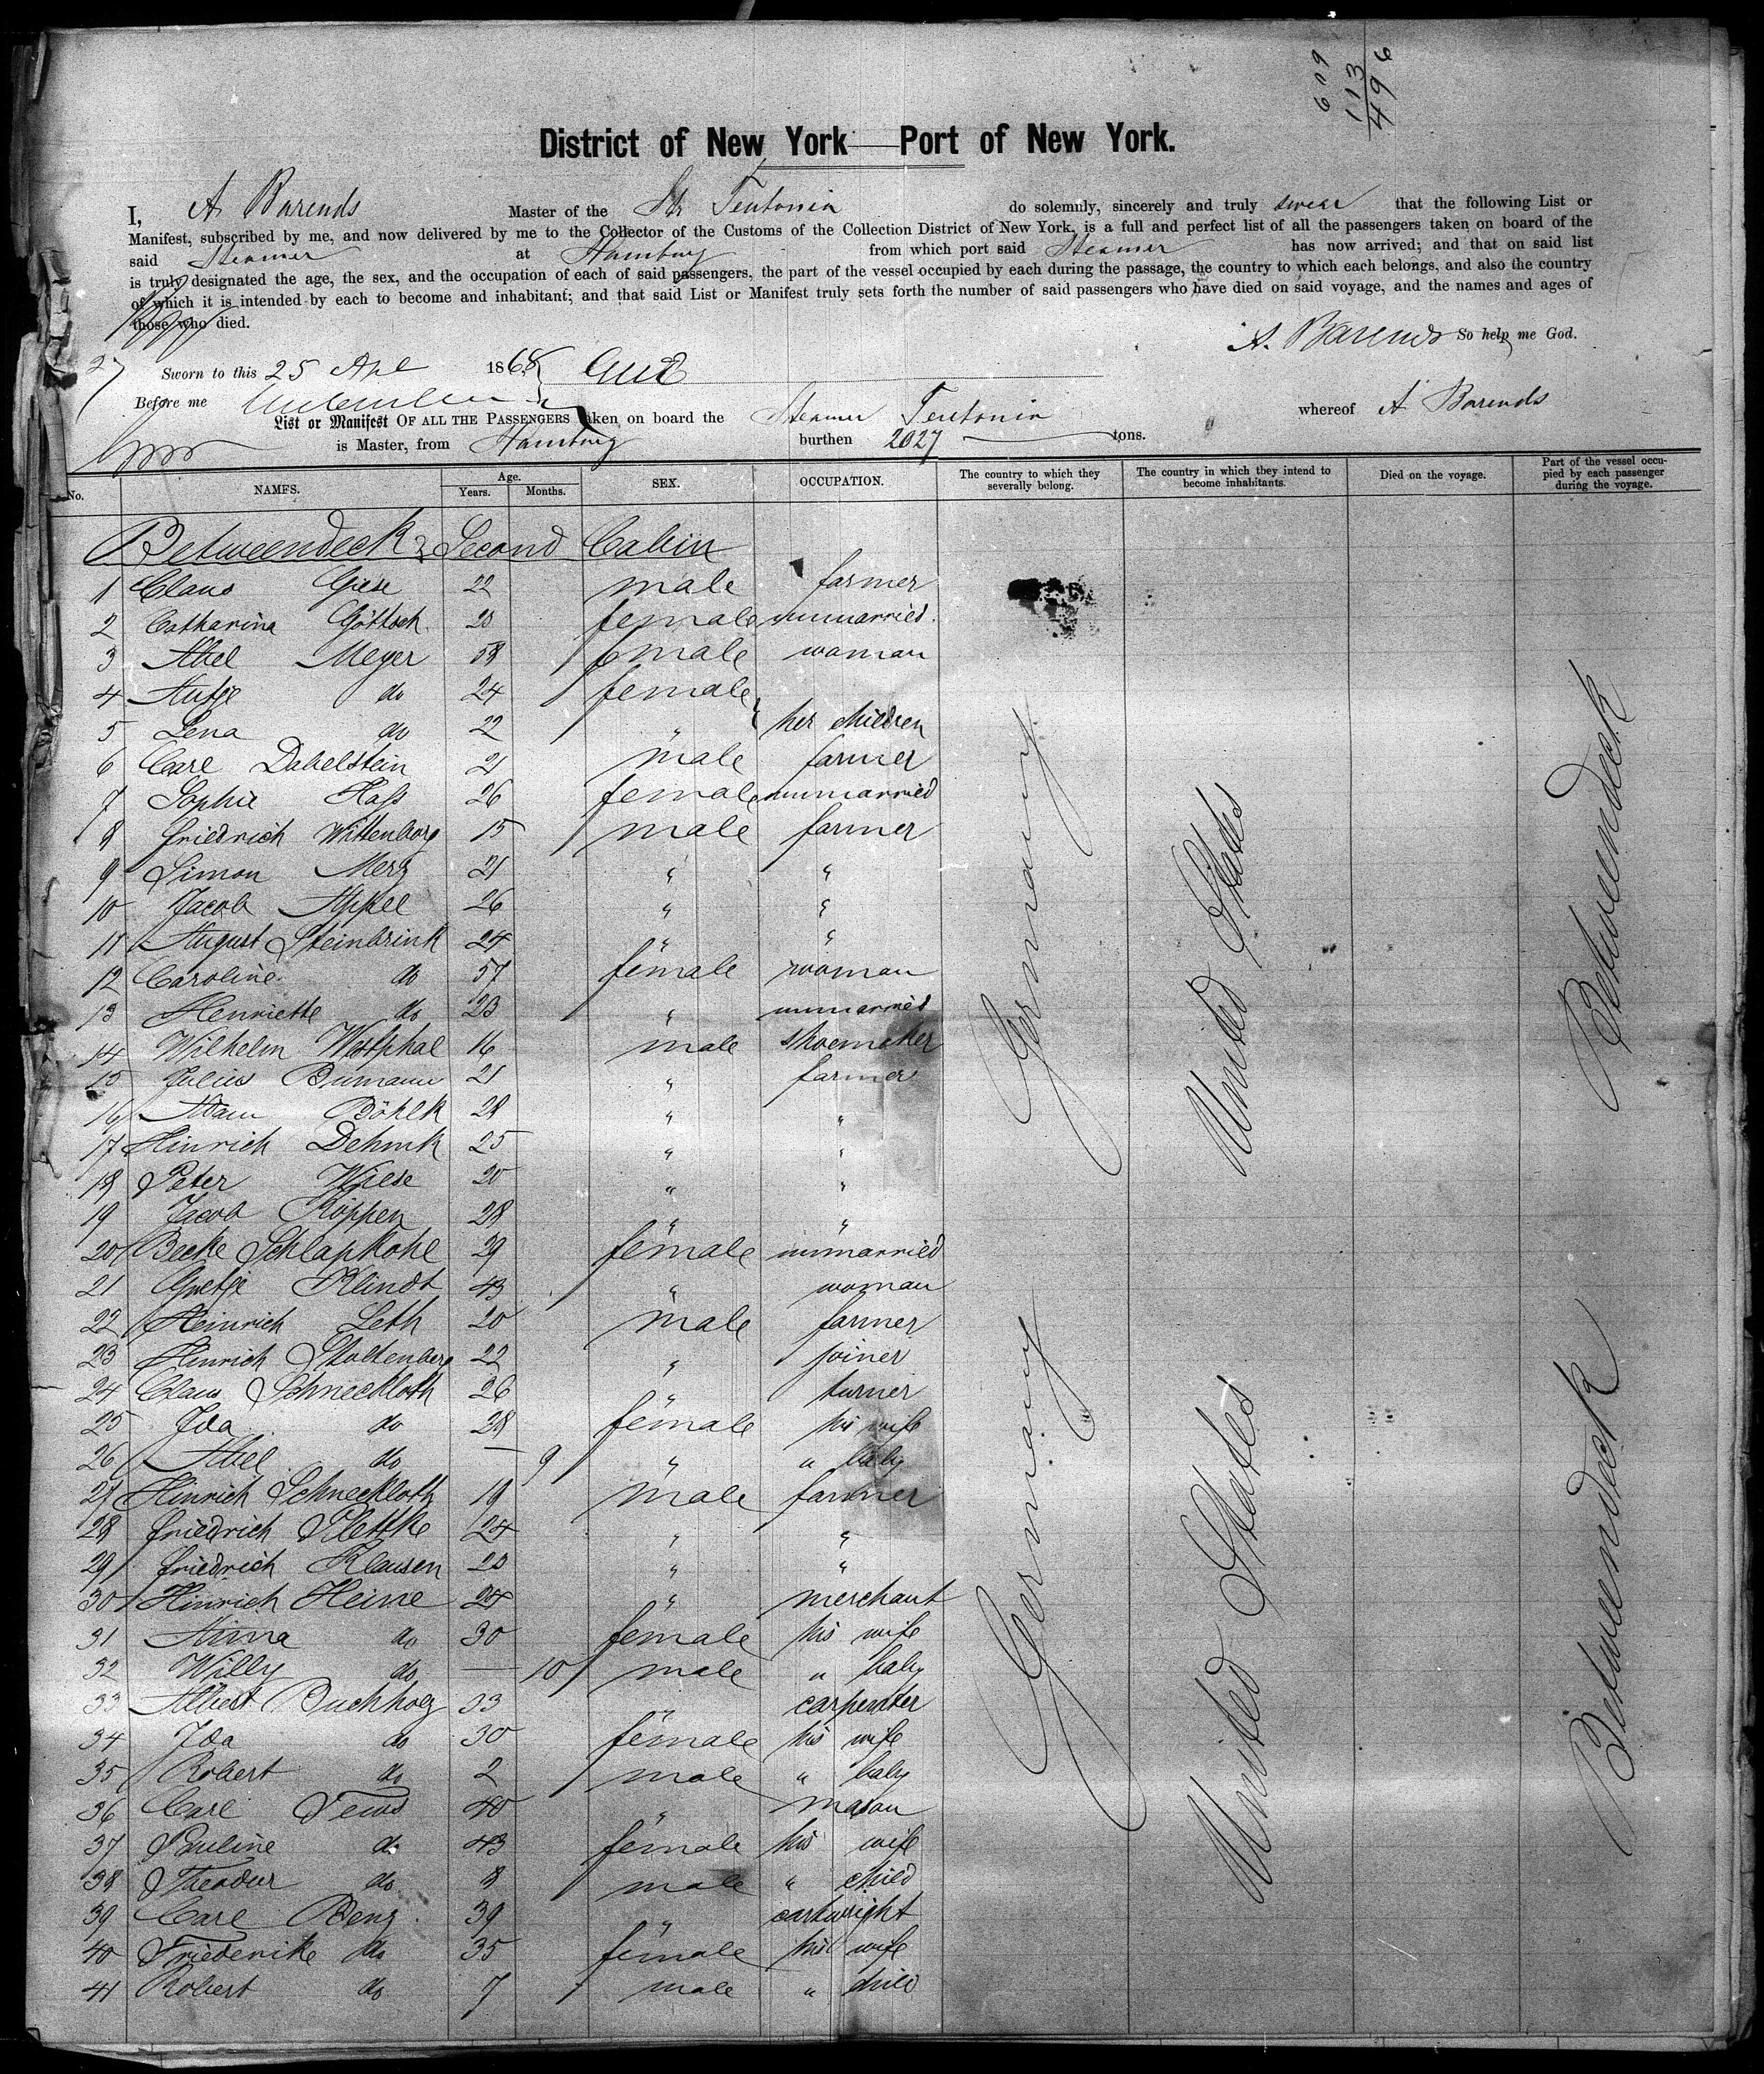 609
113
496
District of New York Port of New York.
I, A Barends Master of the Str Teutonia do solemnly, sincerely and truly swear that the following List or
Manifest, subscribed by me, and now delivered by me to the Collector of the Customs of the Collection District of New York, is a full and perfect list of all the passengers taken on board of the
said Steamer at Hamburg from which port said Steamer has now arrived; and that on said list
is truly designated the age, the sex, and the occupation of each of said passengers, the part of the vessel occupied by each during the passage, the country to which each belongs, and also the country
of which it is intended by each to become and inhabitant; and that said List or Manifest truly sets forth the number of said passengers who have died on said voyage, and the names and ages of
those who died.
A. Barends So help me God.
Sworn to this 25 Apl 1868
Before me
List or Manifest OF ALL THE PASSENGERS taken on board the Steamer Teutonia whereof A Barends
is Master, from Hamburg burthen 2027 tons.
No. NAMES. Age. Years. Months. SEX. OCCUPATION. The country to which they severally belong. The country in which they intend to become inhabitants. Died on the voyage. Part of the vessel occupied by each passenger during the voyage.
Betweendeck & Second Cabin
1 Claus Giese 22 male farmer
2 Catharina Göttsch 20 female unmarried
3 Abel Meyer 58 female woman
4 Antje do 24 female
5 Lena do 22 " her children
6 Carl Dabelstein 21 male farmer
7 Sophie Hass 26 female unmarried
8 Friedrich Wittenborg 15 male farmer
9 Simon Merz 21 " "
10 Jacob Appel 26 " "
11 August Steinbrink 24 " "
12 Caroline do 57 female woman
13 Henriette do 23 " unmarried
14 Wilhelm Westphal 16 male shoemaker
15 Julius Bumann 21 " farmer
16 Adam Böhlk 28 " "
17 Hinrich Dehmk 25 " "
18 Peter Wiese 20 " "
19 Jacob Köppen 28 " "
20 Becke Schlapkohl 29 female unmarried
21 Gretje Klindt 43 " woman
22 Heinrich Leth 20 male farmer
23 Hinrich Stoltenberg 22 " joiner
24 Claus Schneckloth 26 " turner
25 Ida do 28 female his wife
26 Abel do — 9 " " baby
27 Hinrich Schneckloth 19 male farmer
28 Friedrich Plettke 24 " "
29 Friedrich Klausen 20 " "
30 Hinrich Heine 24 " merchant
31 Anna do 30 female his wife
32 Willy do — 10 male " baby
33 Albert Buchholz 33 " carpenter
34 Ida do 30 female his wife
35 Robert do 2 male " baby
36 Carl Tews 40 " mason
37 Pauline do 43 female his wife
38 Theodur do 8 male " child
39 Carl Benz 39 " cartwright
40 Friederike do 35 female his wife
41 Robert do 7 male " child
Germany
United States
Betweendeck
Germany
United States
Betweendeck